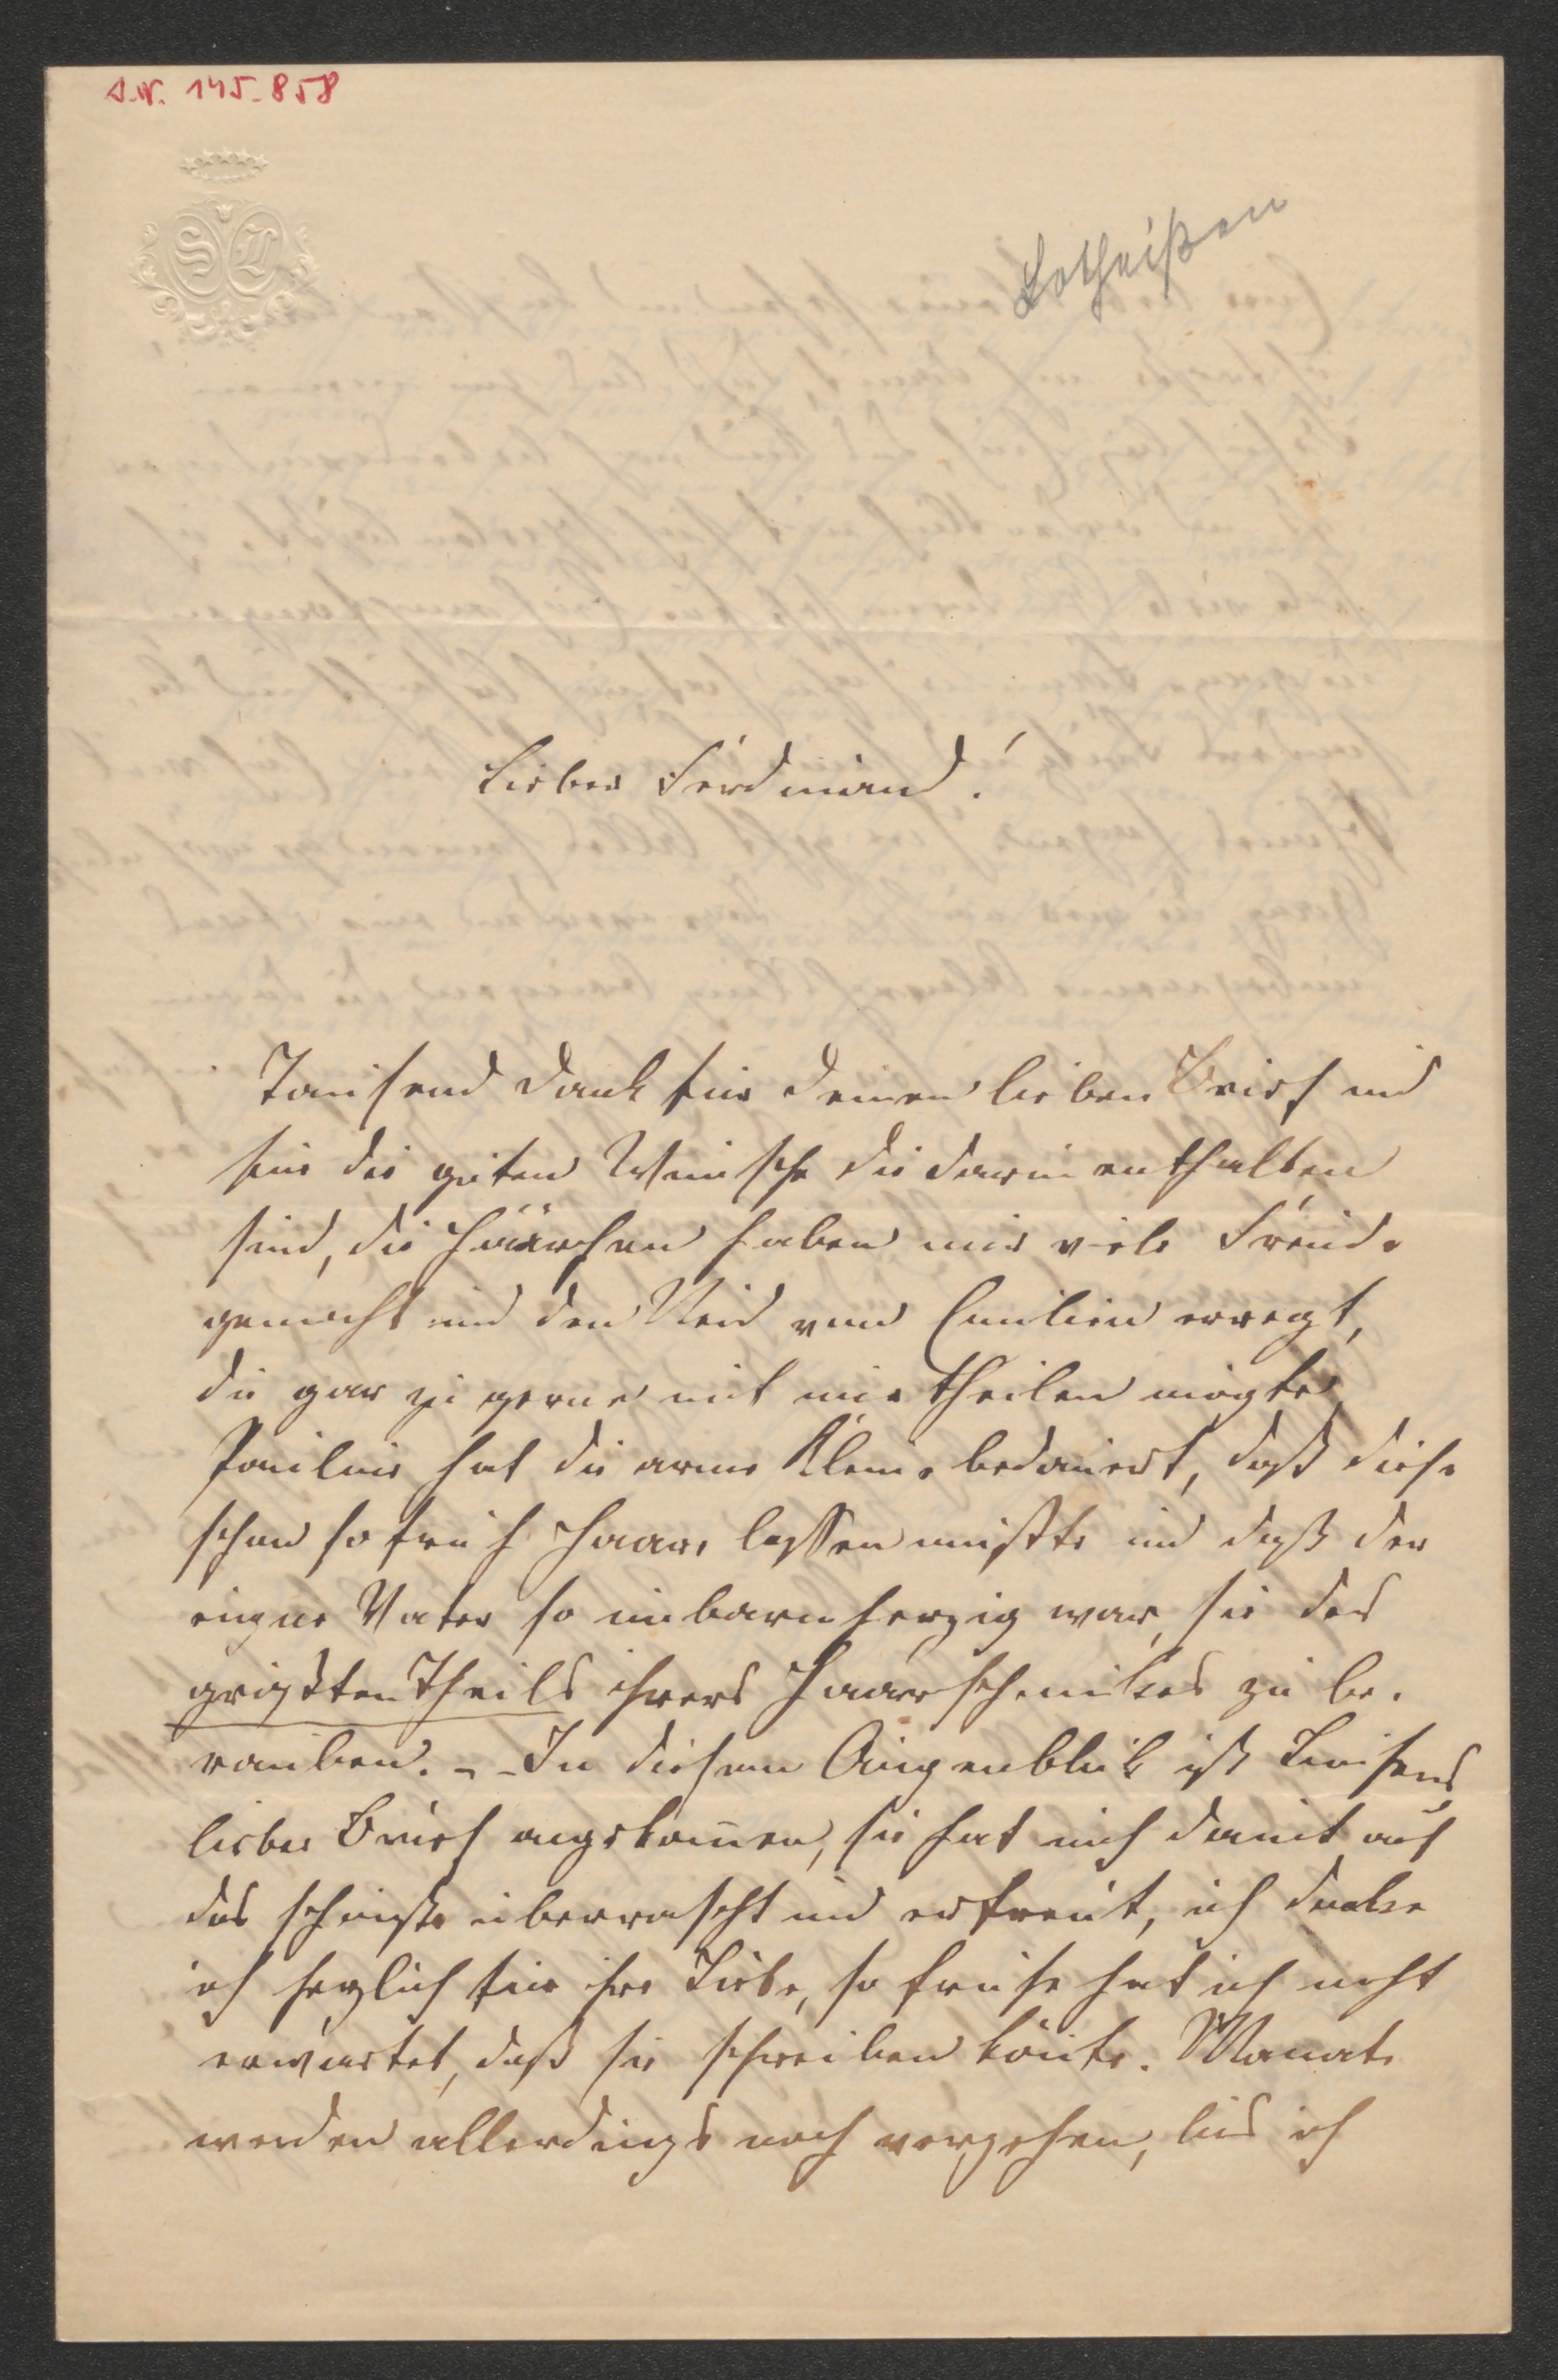 I.N. 145.858
SL
Lotheißen
Lieber Ferdinand!
Tausend Dank für deinen lieben Brief und
für die guten Wünsche die darin enthalten
sind, die Häärchen haben mir viele Freude
gemacht und den Neid von Emilien erregt,
die gar zu gerne mit mir theilen mögte
Pauline hat die arme Kleine bedauert, daß diese
schon so früh Haare lassen mußte und daß der
eigne Vater so unbarmherzig war, sie des
größten Theils ihres Haarschmukes zu be-
rauben. – In diesem Augenblik ist Luisens
lieber Brief angekommen, sie hat mich damit auf
das schönste überrascht und erfreut, ich danke
ihr herzlich für ihre Liebe, so frühe hat ich nicht
erwartet, daß sie schreiben könte. Monate
werden allerdings noch vergehen, bis ich